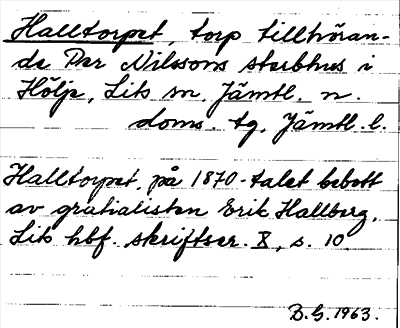 Halltorpet, torp tillhöran-
de Per Nilssons sterbhus i
Hölje, Lits sn. Jämtl. n.
doms. tg, Jämtl. l.
Halltorpet, på 1870-talet bebott
av gratialisten Erik Hallberg.
Lits hbf. skriftser. X, s. 10.
B.G. 1963.